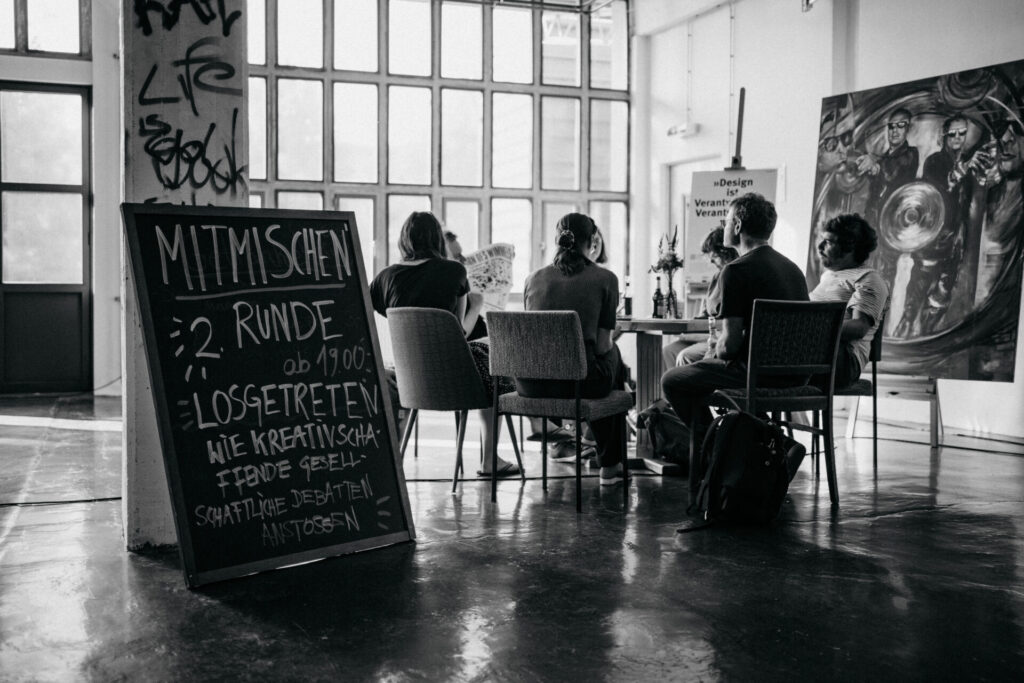 Life
MITMISCHEN
2. RUNDE
ab 19:00
LOSGETRETEN
WIE KREATIVSCHA-
FFENDE GESELL-
SCHAFTLICHE DEBATTEN
ANSTOSSEN
»Design
ist